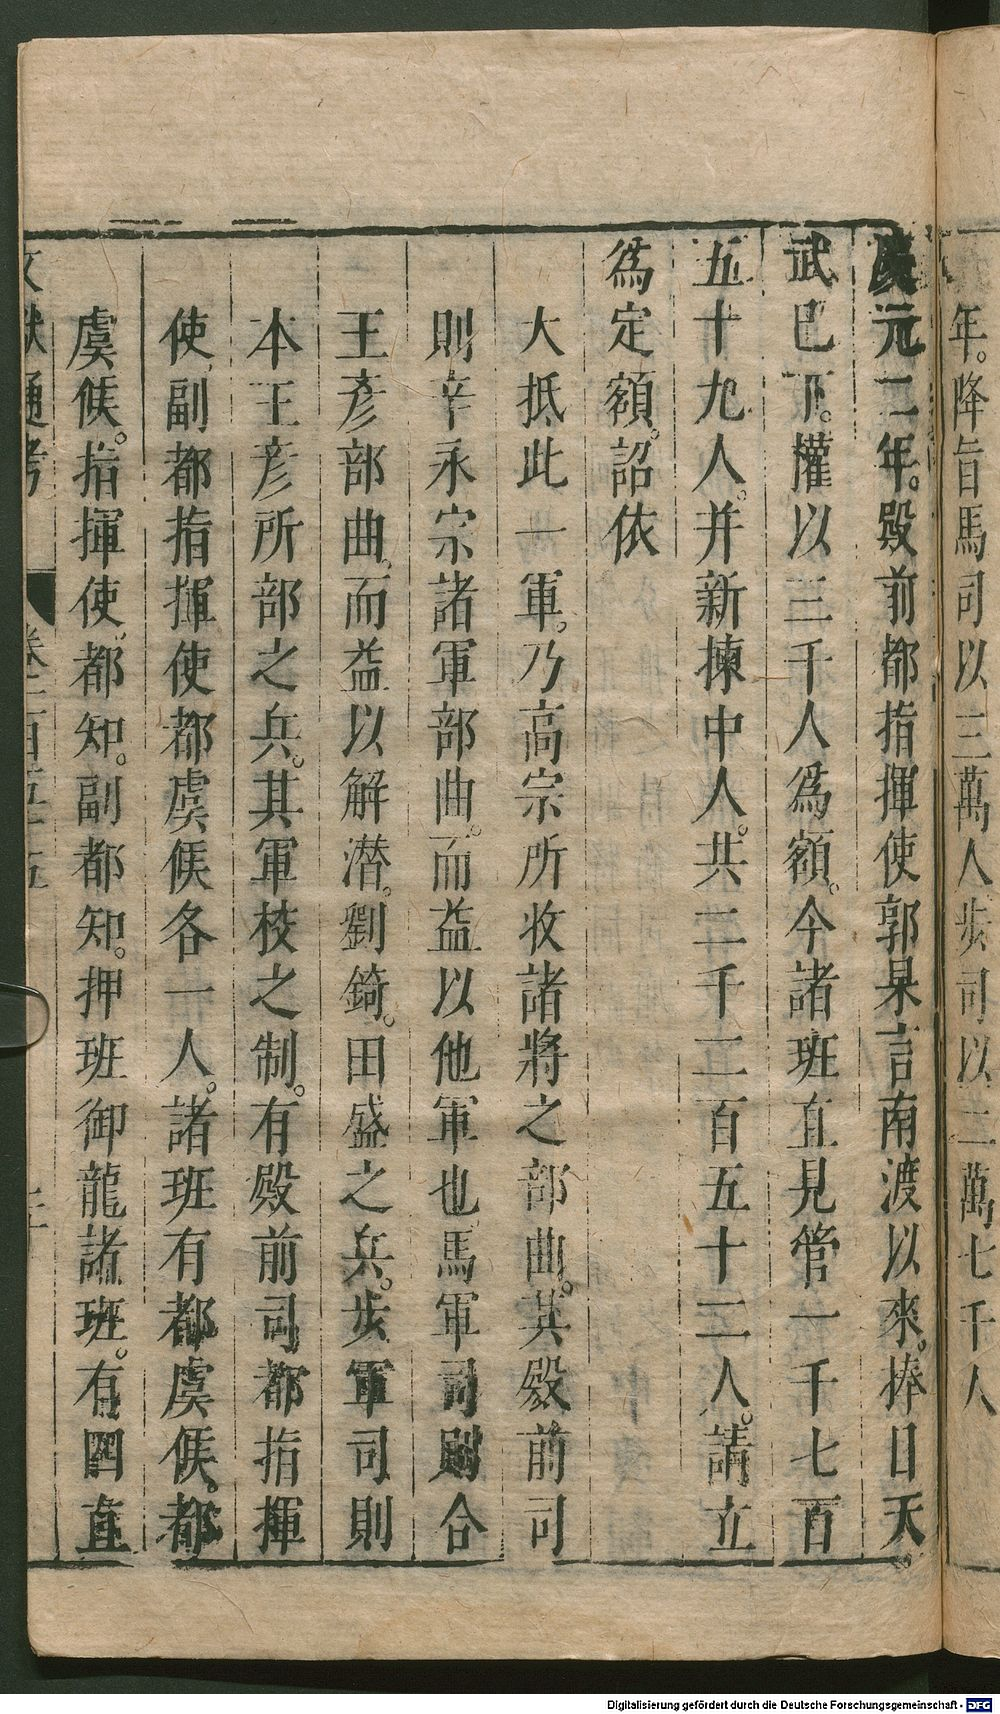 年。降旨馬司以三萬人步司以二萬七千人
慶元二年。殿前都指揮使郭杲言南渡以來。捧日天。
武已下。權以三千人爲額。今諸班直見管一千七百
五十九人。并新揀中人。共二千二百五十二人。請立
爲定額。詔依
大抵此一軍。乃高宗所收諸將之部曲。其殿前司
則辛永宗諸軍部曲。而益以他軍也馬軍司則合
王彥部曲。而益以解潜。劉錡。田盛之兵。步軍司則
本王彥所部之兵。其軍校之制。有殿前司都指揮
使副都指揮使都虞候各一人。諸班有都虞候。都
虞候。指揮使都知。副都知。押班御龍諸班。有四直
文獻通考 卷一百五十五
Digitalisierung gefördert durch die Deutsche Forschungsgemeinschaft - DFG